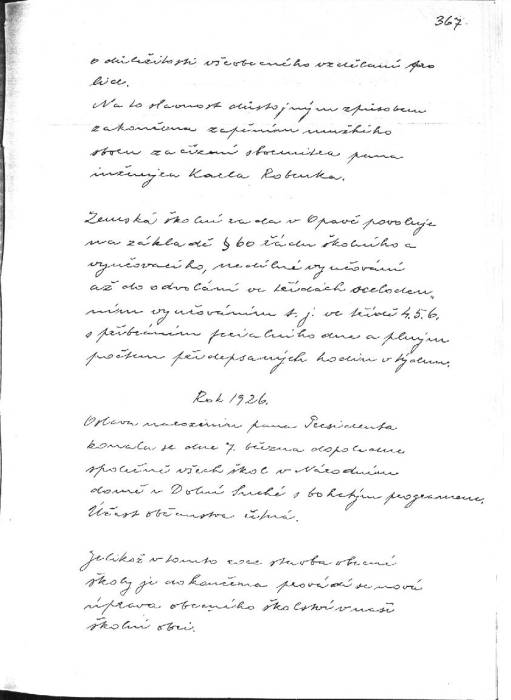 367.
o důležitosti všeobecného vzdělání pro
lid.
Na to slavnost důstojným způsobem
zakončena zapěním mužského
sboru za řízení sbormistra pana
inženýra Karla Robenka.
Zemská školní rada v Opavě povoluje
na základě § 60 řádu školního a
vyučovacího, nedílné vyučování
až do odvolání ve třídách celoden-
ním vyučováním t. j. ve třídě 4. 5. 6.
s přibráním feriálního dne a plným
počtem předepsaných hodin v týdnu.
Rok 1926.
Oslava narozenin pana Presidenta
konala se dne 7. března dopoledne
společně všech škol v Národním
domě v Dolní Suché s bohatým programem.
Účast občanstva četná.
Jelikož v tomto roce stavba obecné
školy je dokončena provádí se nová
úprava obecného školství v naší
školní obci.